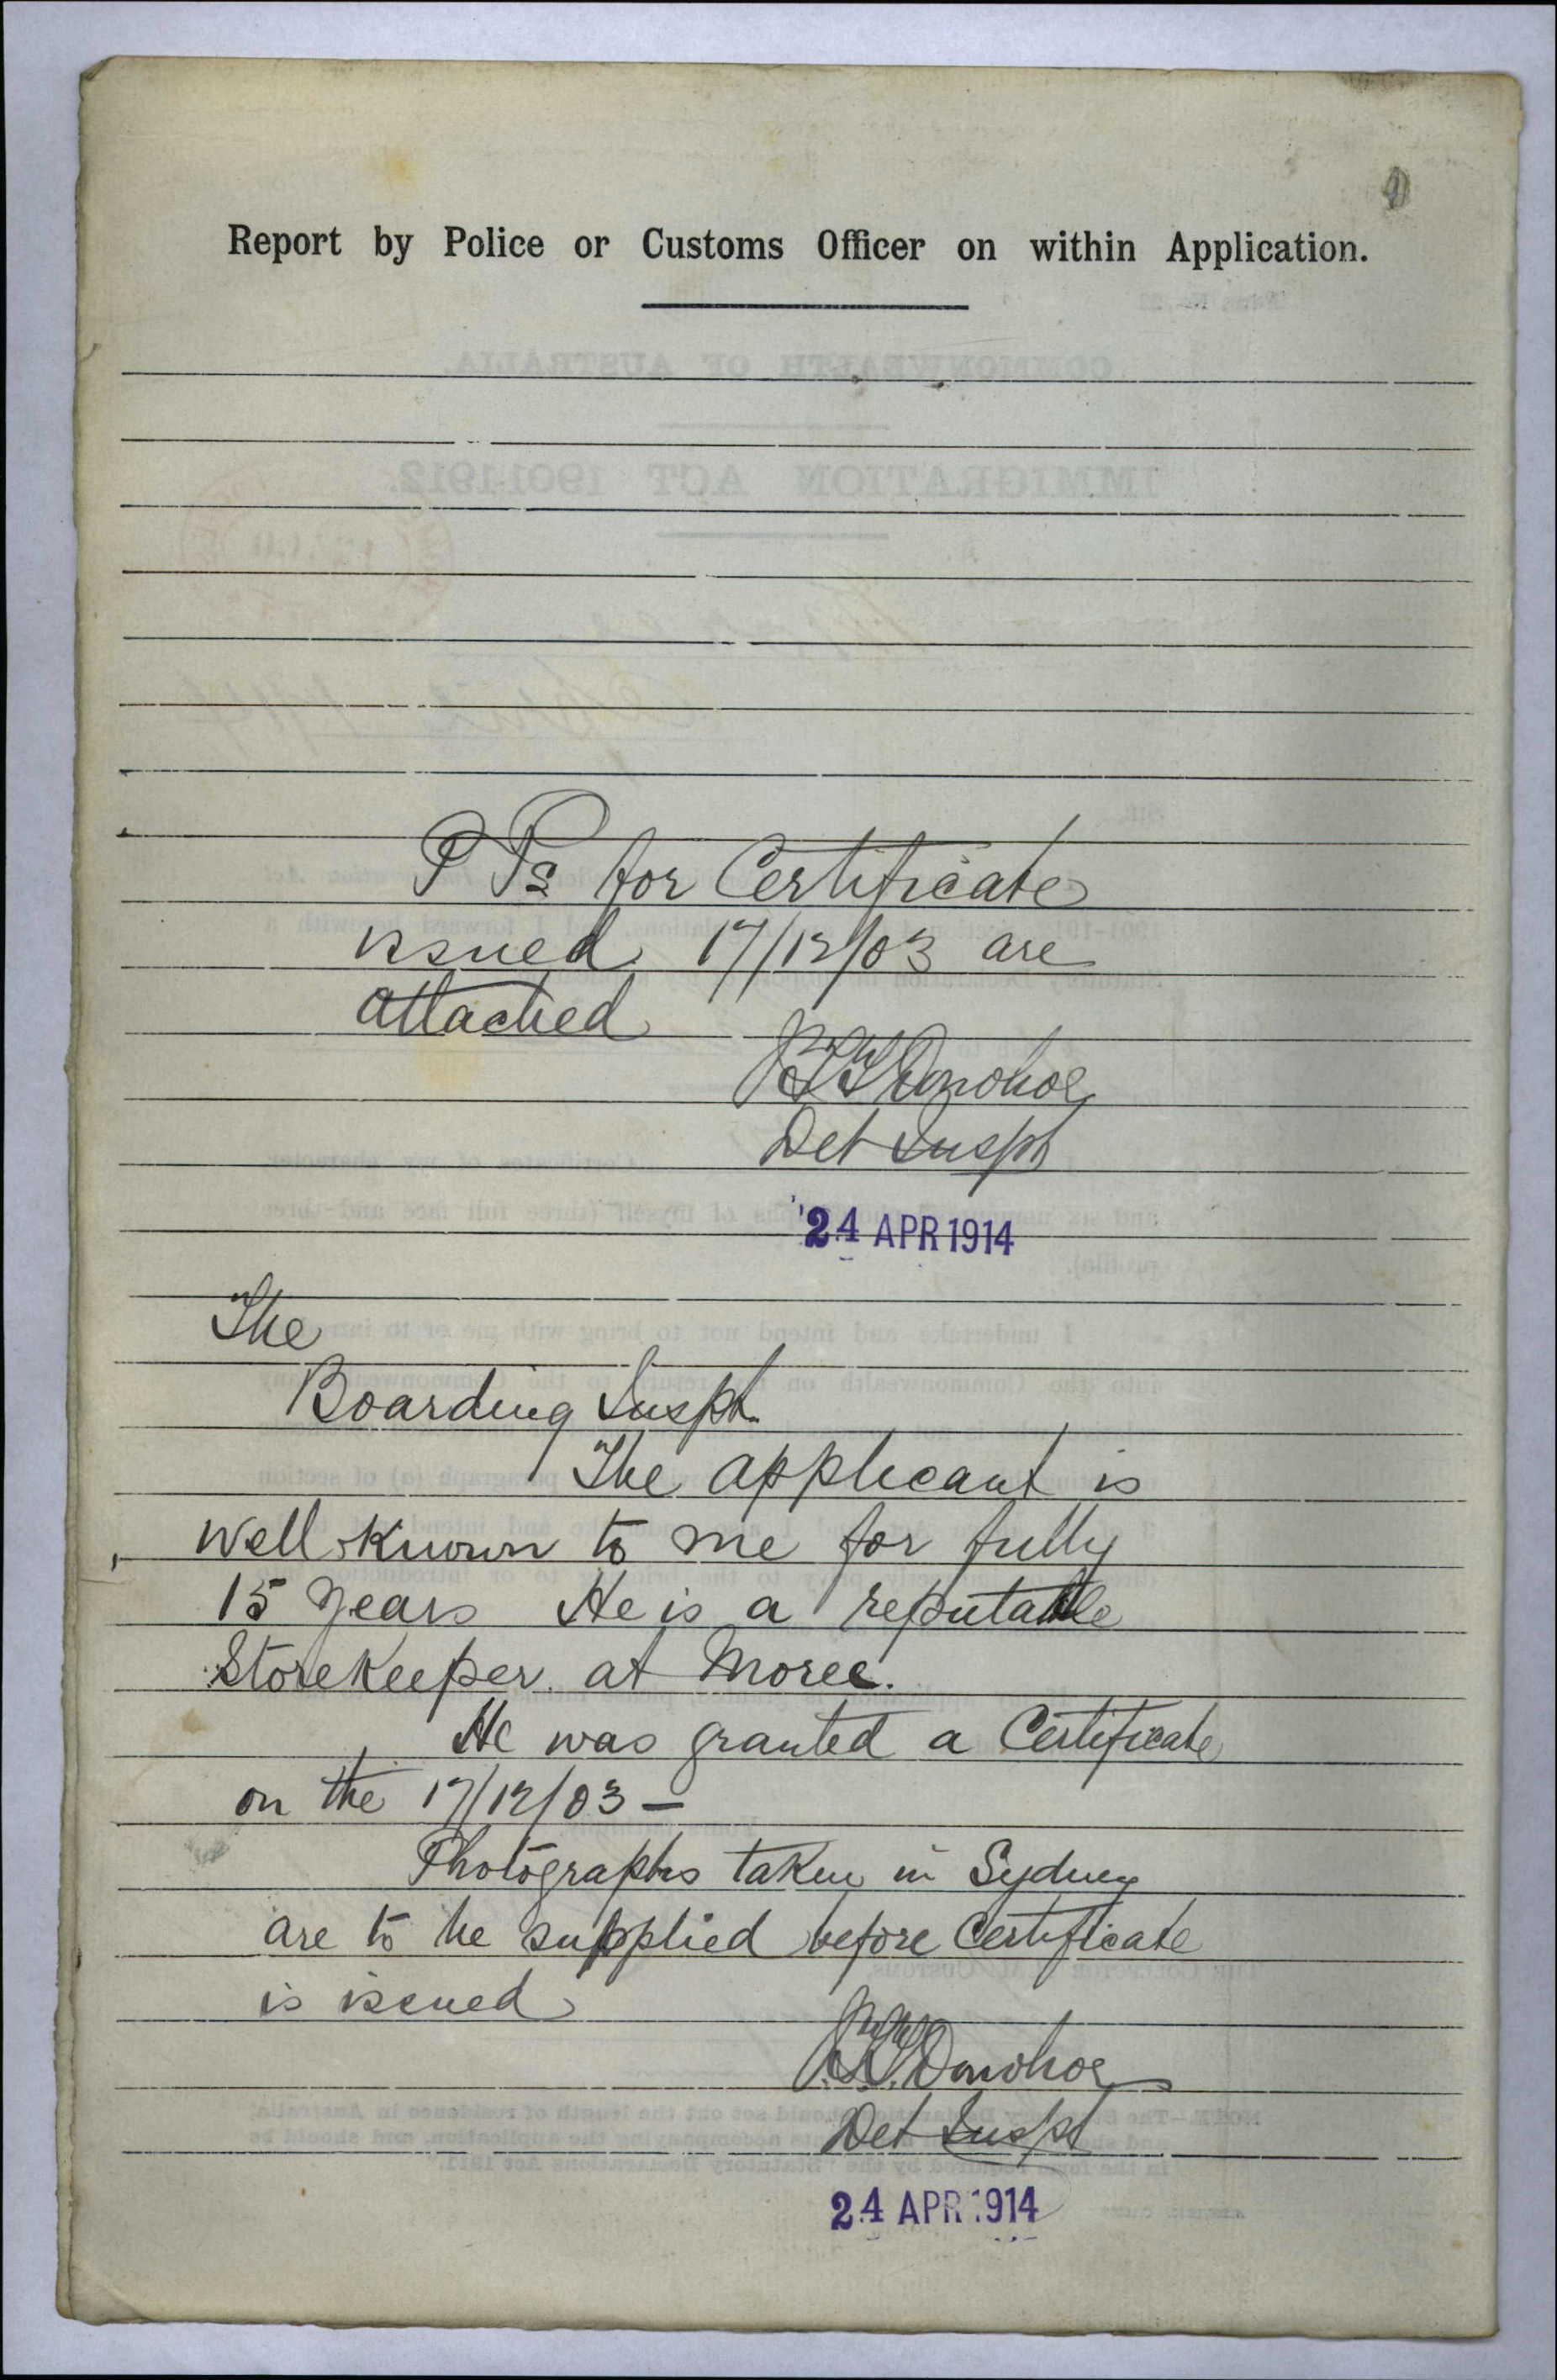 Report by Police or Customs Officer on within Application.
P Ps for Certificate
issued 17/12/03 are
attached
Donohoe
Det Inspr
24 APR 1914
The
Boarding Inspr.
The applicant is
well known to me for fully
15 years He is a reputable
Storekeeper at Moree.
He was granted a Certificate
on the 17/12/03 —
Photographs taken in Sydney
are to be supplied before Certificate
is issued
Donohoe
Det Inspr
24 APR 1914